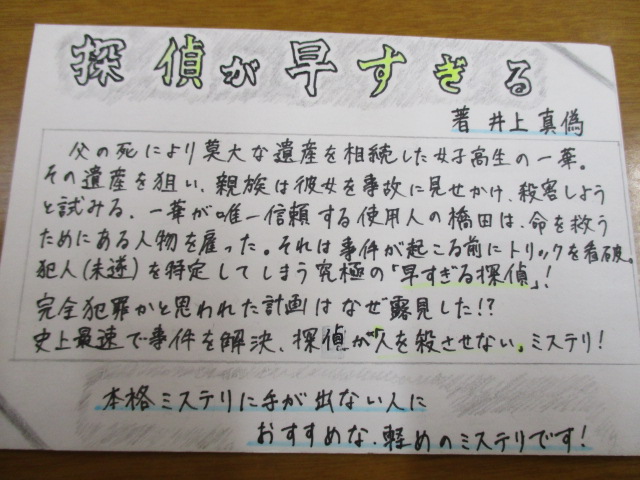 探偵が早すぎる
著 井上真偽
父の死により莫大な遺産を相続した女子高生の一華。
その遺産を狙い、親族は彼女を事故に見せかけ、殺害しよう
と試みる。一華が唯一信頼する使用人の橋田は、命を救う
ためにある人物を雇った。それは事件が起こる前にトリックを看破。
犯人(未遂)を特定してしまう究極の「早すぎる探偵」!
完全犯罪かと思われた計画はなぜ露見した!?
史上最速で事件を解決、探偵が「人を殺させない」ミステリ!
本格ミステリに手が出ない人に
おすすめな、軽めのミステリです!